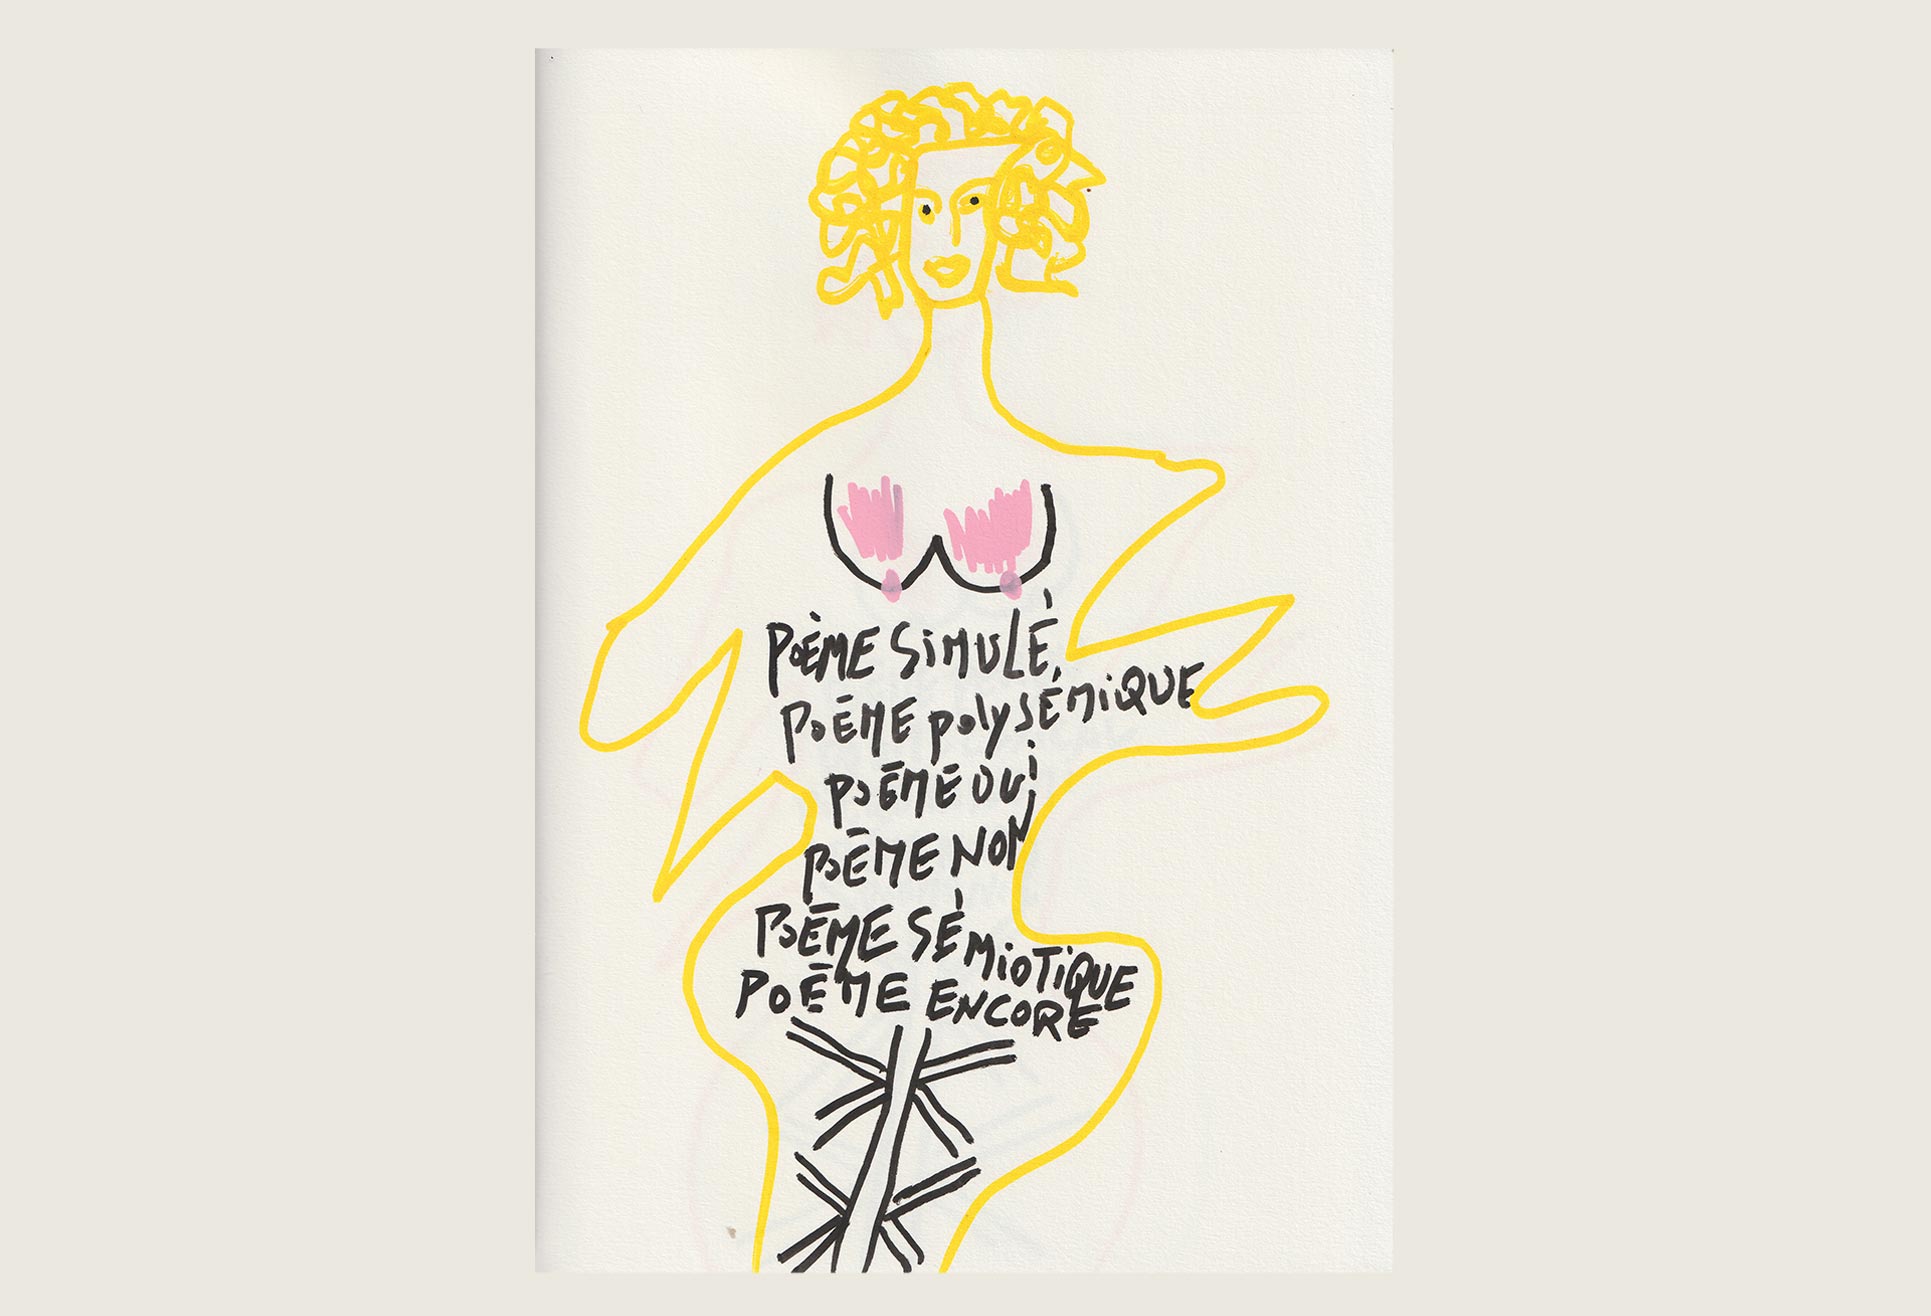 POÈME SiMULÉ,
POĒME polySÉMiQUE
POĒME OUi
POĒME NON
POĒME SÉMiOTiQUE
POĒME ENCORE